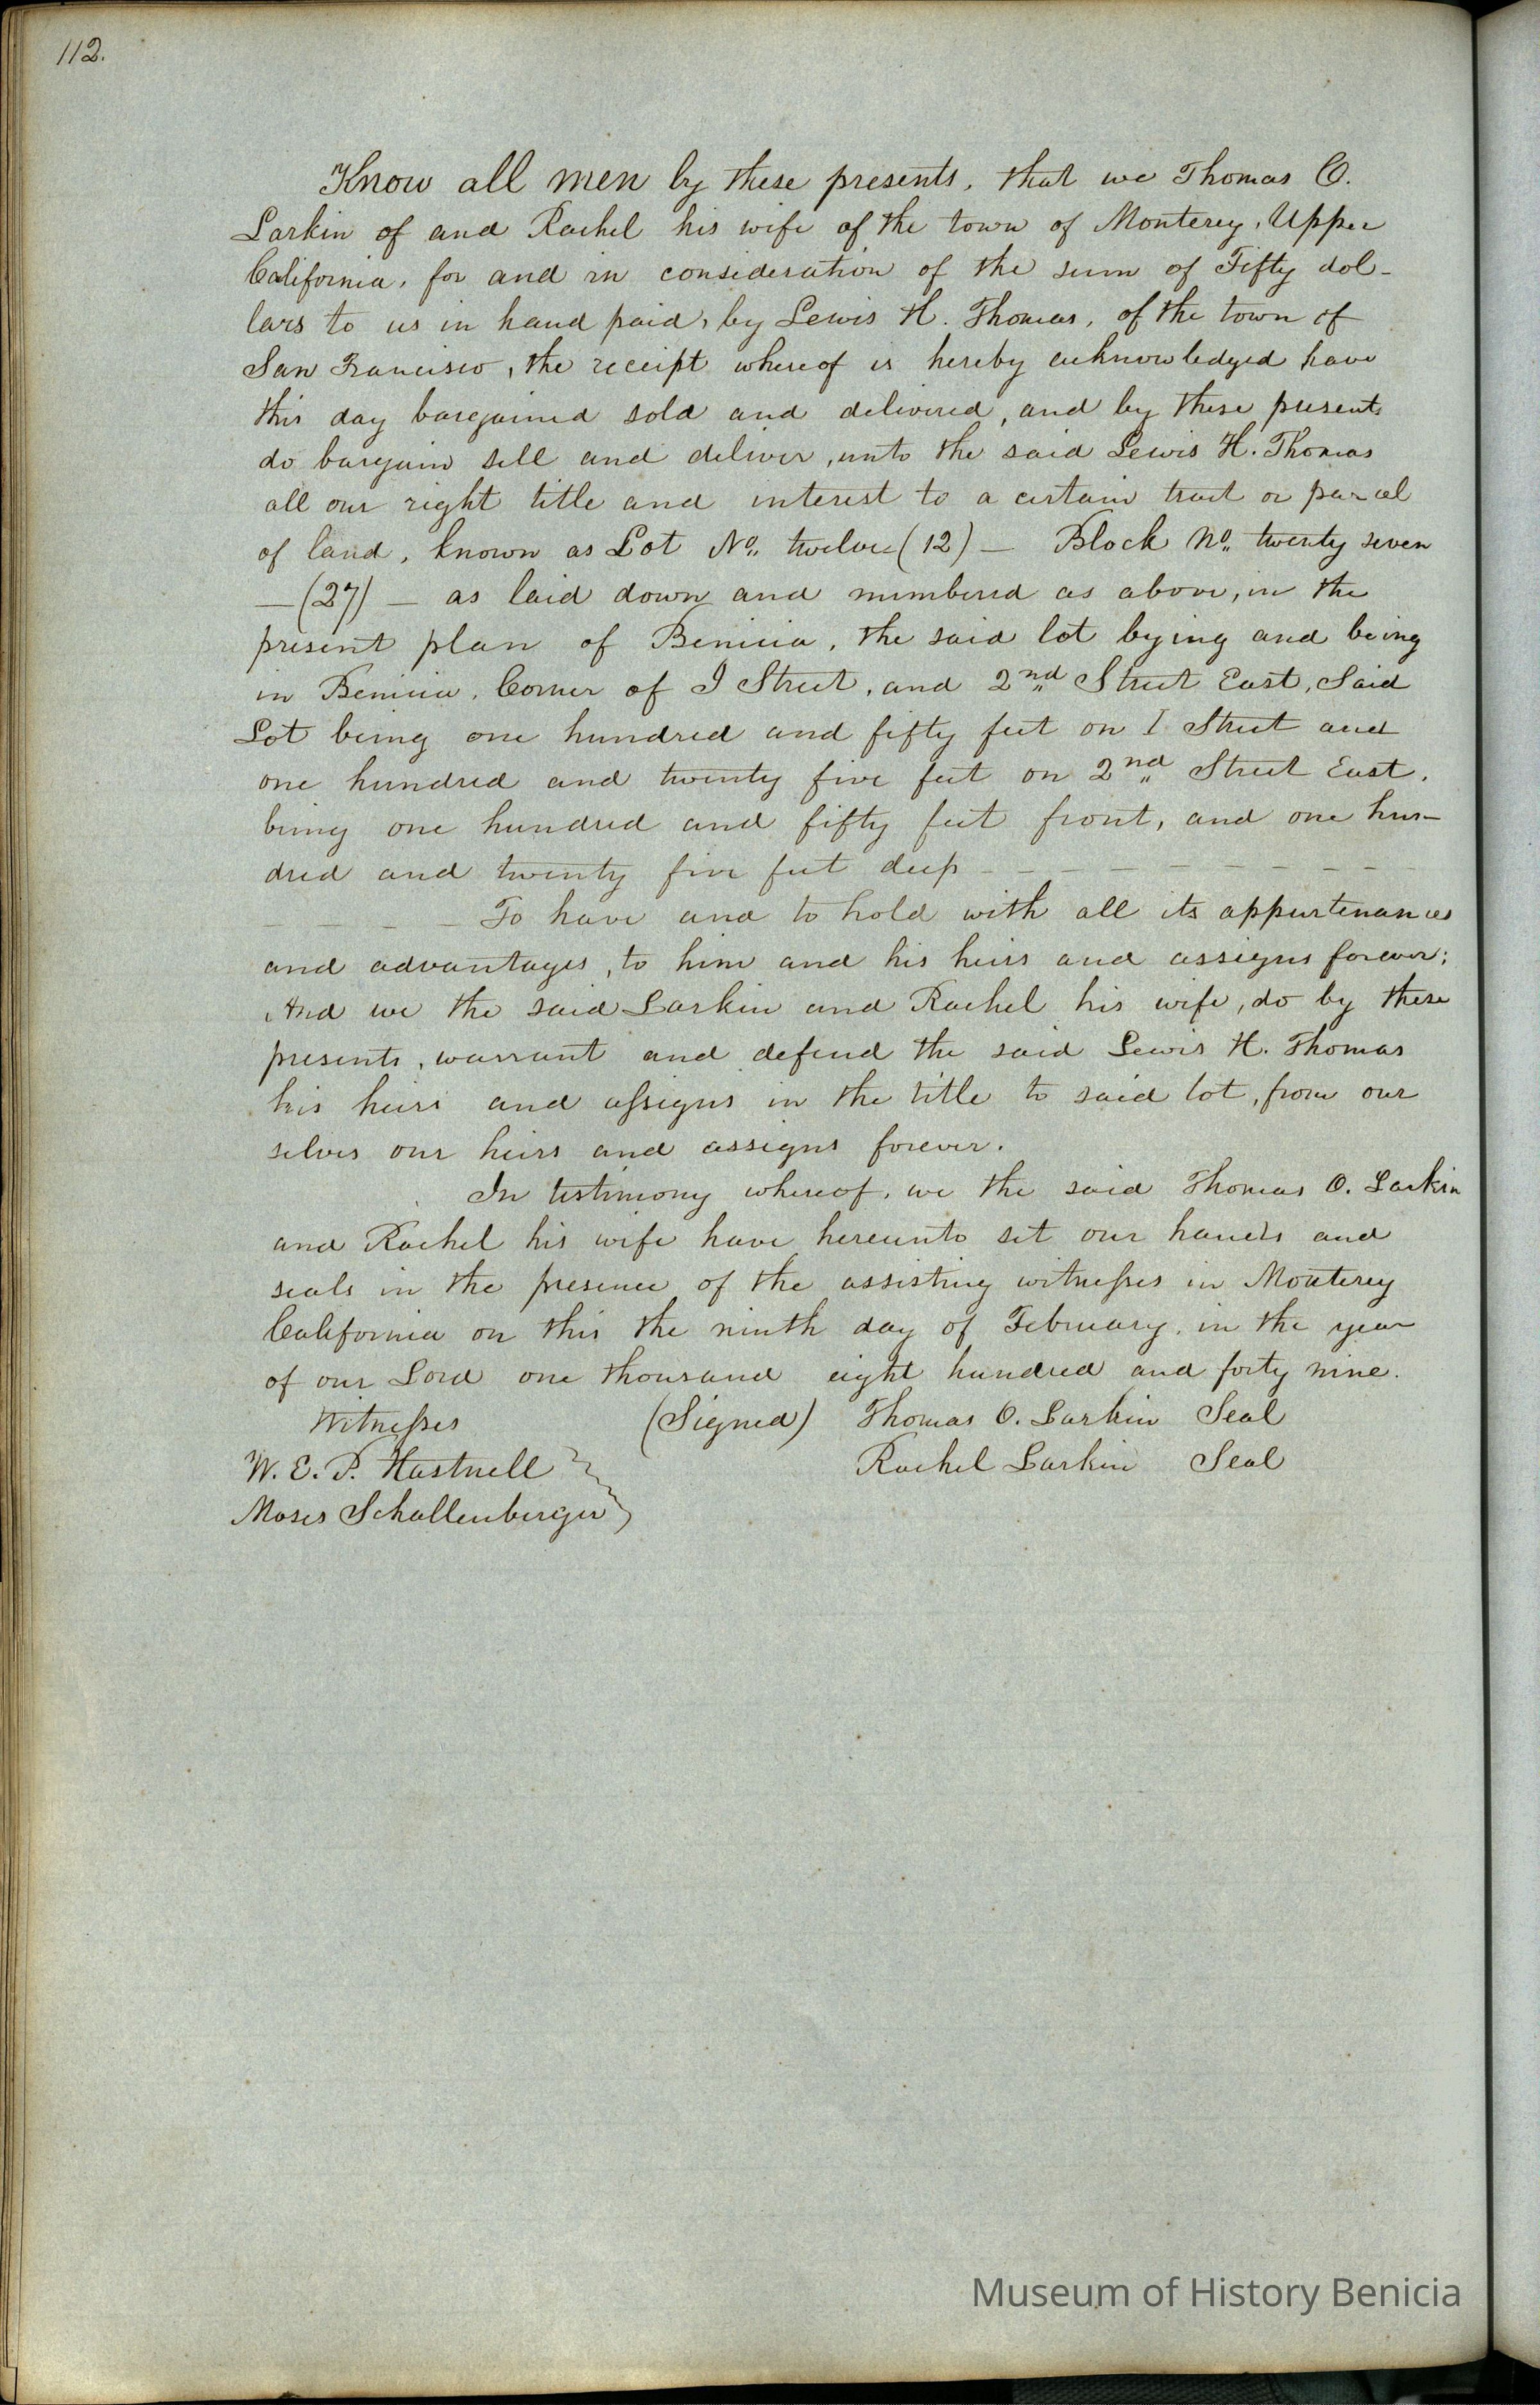 112.
Know all men by these presents, that we Thomas O.
Larkin of and Rachel his wife of the town of Monterey, Upper
California, for and in consideration of the sum of Fifty dol-
lars to us in hand paid, by Lewis H. Thomas, of the town of
San Francisco, the receipt whereof is hereby acknowledged have
this day bargained sold and delivered, and by these presents
do bargain sell and deliver, unto the said Lewis H. Thomas
all our right title and interest to a certain tract or parcel
of land, known as Lot No. twelve (12) — Block No. twenty seven
— (27) — as laid down and numbered as above, in the
present plan of Benicia, the said lot lying and being
in Benicia, Corner of I Street, and 2nd Street East, Said
Lot being one hundred and fifty feet on I Street and
one hundred and twenty five feet on 2nd Street East.
being one hundred and fifty feet front, and one hun-
dred and twenty five feet deep - - - - - - - -
- - - - To have and to hold with all its appurtenances
and advantages, to him and his heirs and assigns forever;
And we the said Larkin and Rachel his wife, do by these
presents, warrant and defend the said Lewis H. Thomas
his heirs and assigns in the title to said lot, from our
selves our heirs and assigns forever.
In testimony whereof, we the said Thomas O. Larkin
and Rachel his wife have hereunto set our hands and
seals in the presence of the assisting witnesses in Monterey
California on this the ninth day of February, in the year
of our Lord one thousand eight hundred and forty nine.
Witnesses (Signed) Thomas O. Larkin Seal
W. E. P. Hartnell Rachel Larkin Seal
Moses Schallenberger
Museum of History Benicia